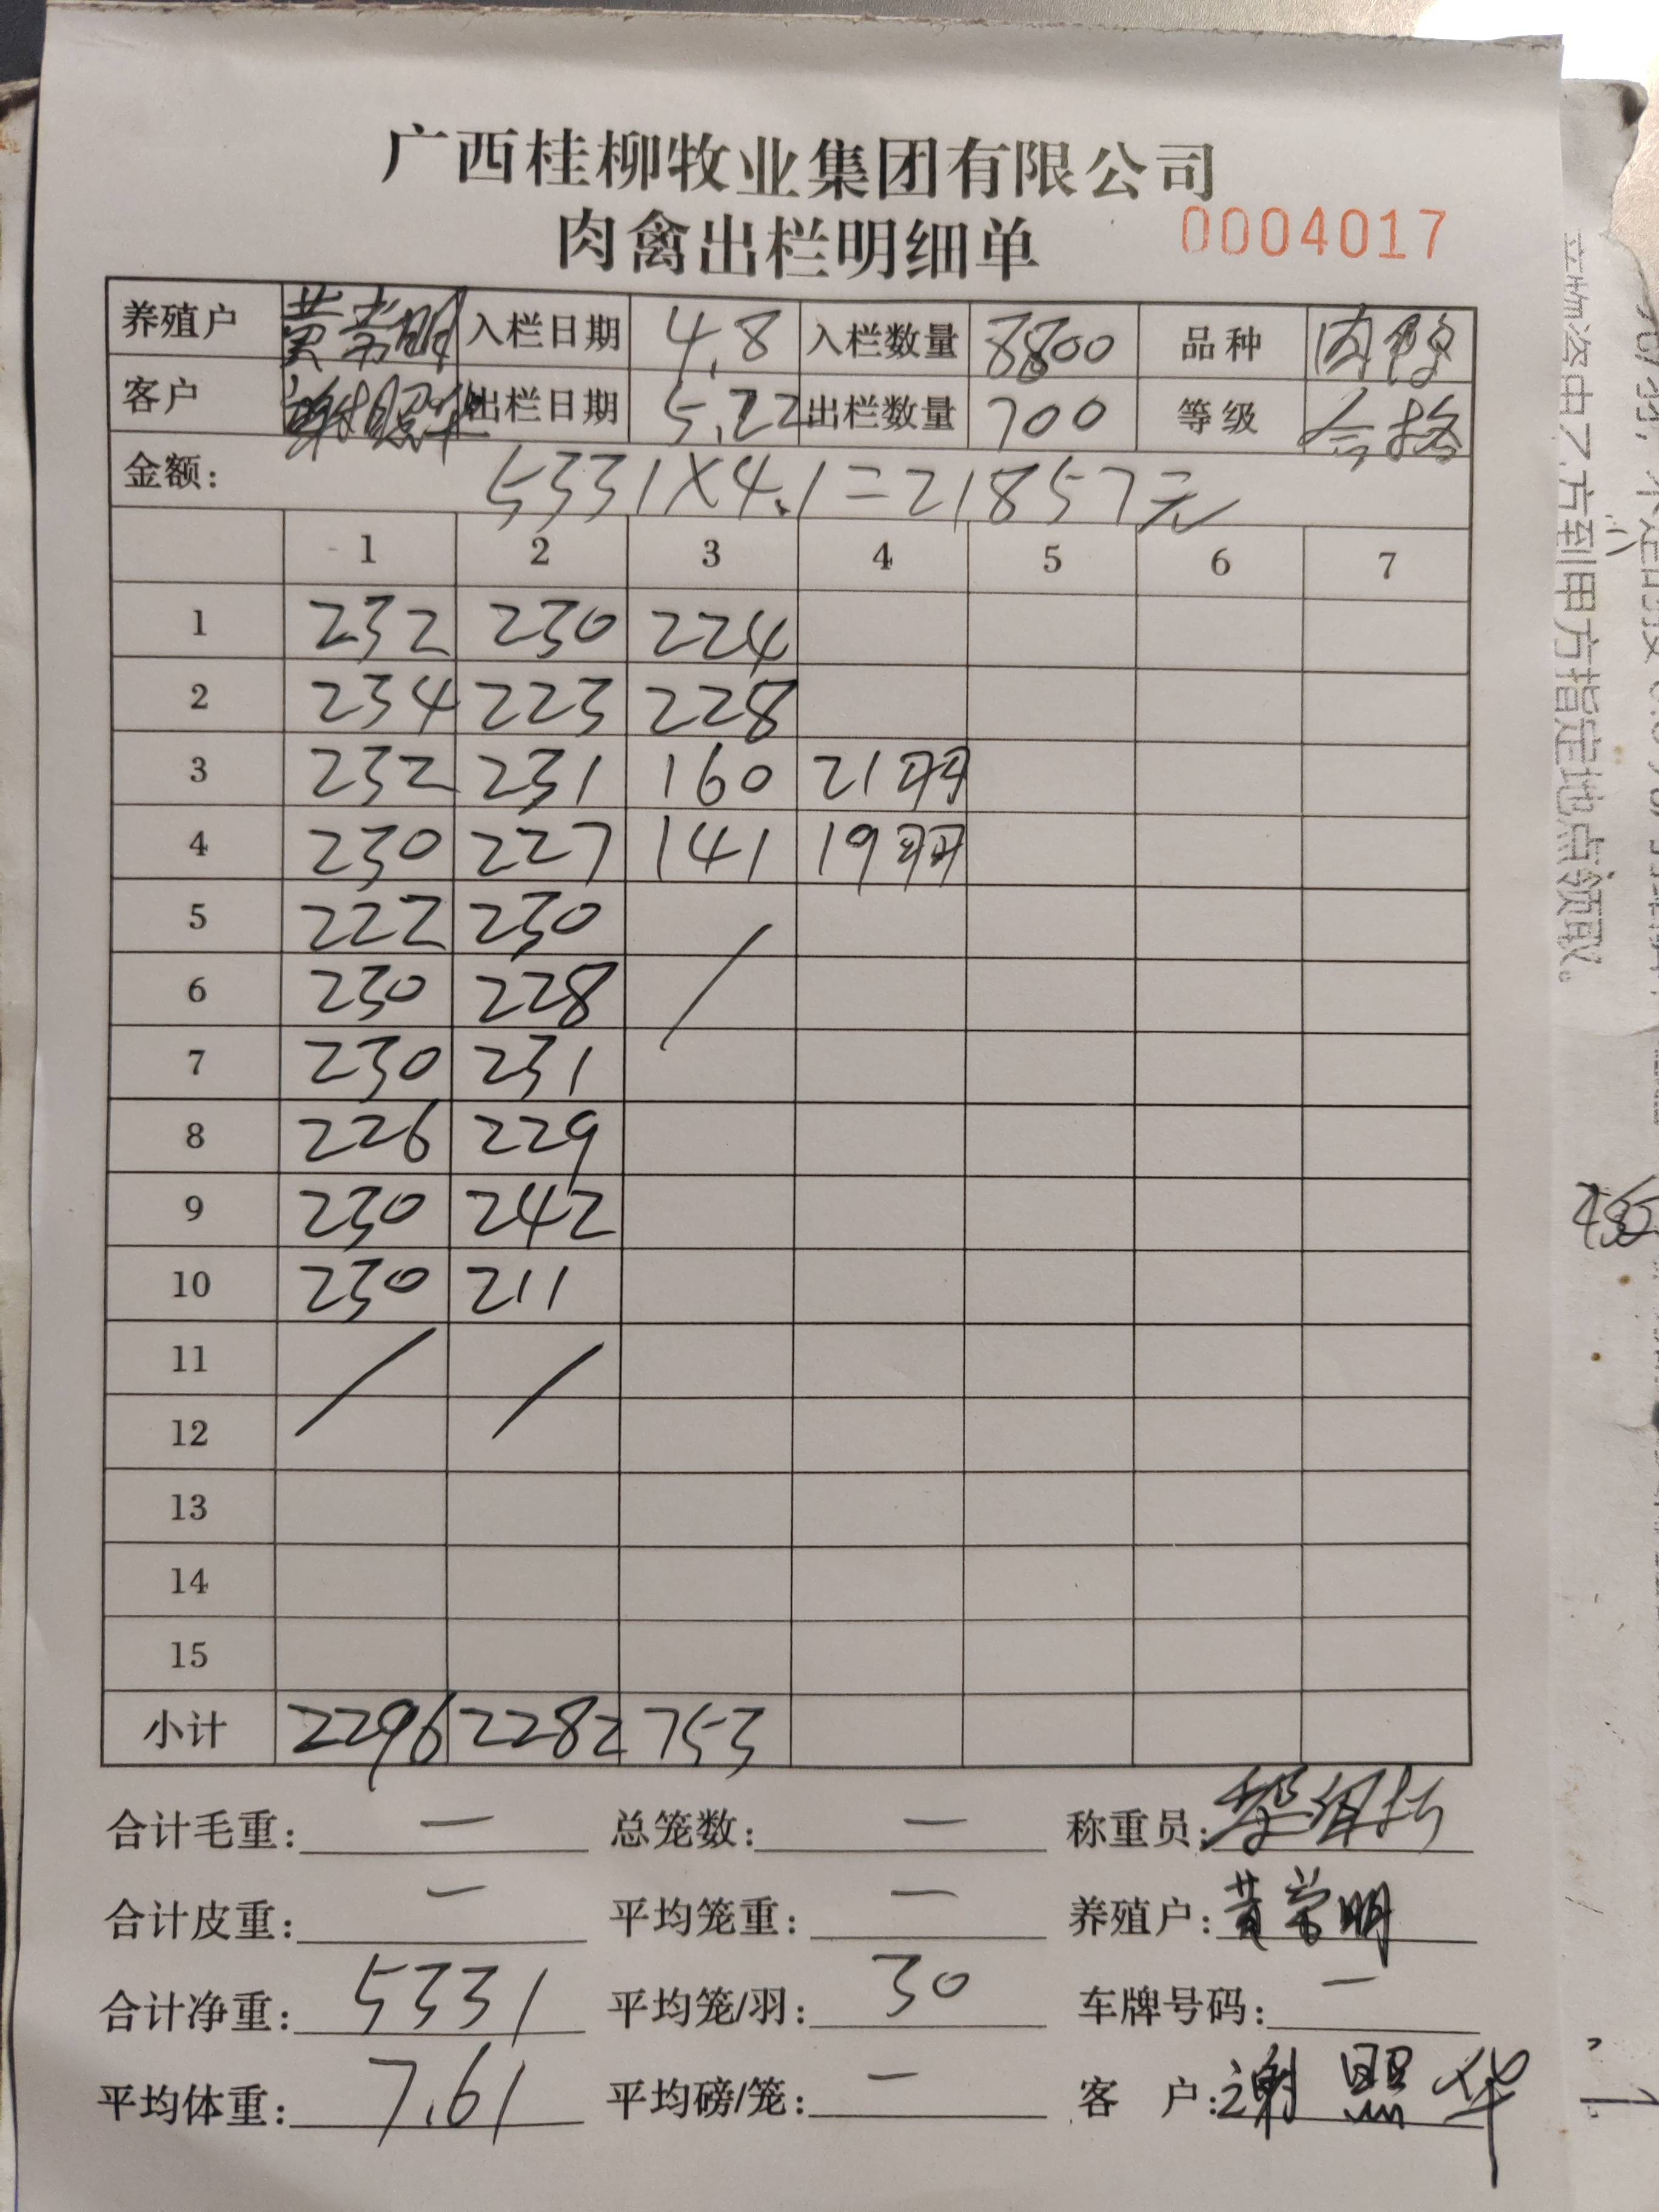 广西桂柳牧业集团有限公司
肉禽出栏明细单 0004017
养殖户 黄常明 入栏日期 4.8 入栏数量 8800 品种 肉鸭
客户 谢照华 出栏日期 5.22 出栏数量 700 等级 合格
金额: 5331×4.1=21857元
1 2 3 4 5 6 7
1 232 230 224
2 234 223 228
3 232 231 160 21羽
4 230 227 141 19羽
5 222 230 /
6 230 228
7 230 231
8 226 229
9 230 242
10 230 211
11 / /
12
13
14
15
小计 2296 2282 753
合计毛重: — 总笼数: — 称重员:
合计皮重: — 平均笼重: — 养殖户: 黄常明
合计净重: 5331 平均笼/羽: 30 车牌号码: —
平均体重: 7.61 平均磅/笼: — 客 户: 谢照华
方到甲方指定地点领取。